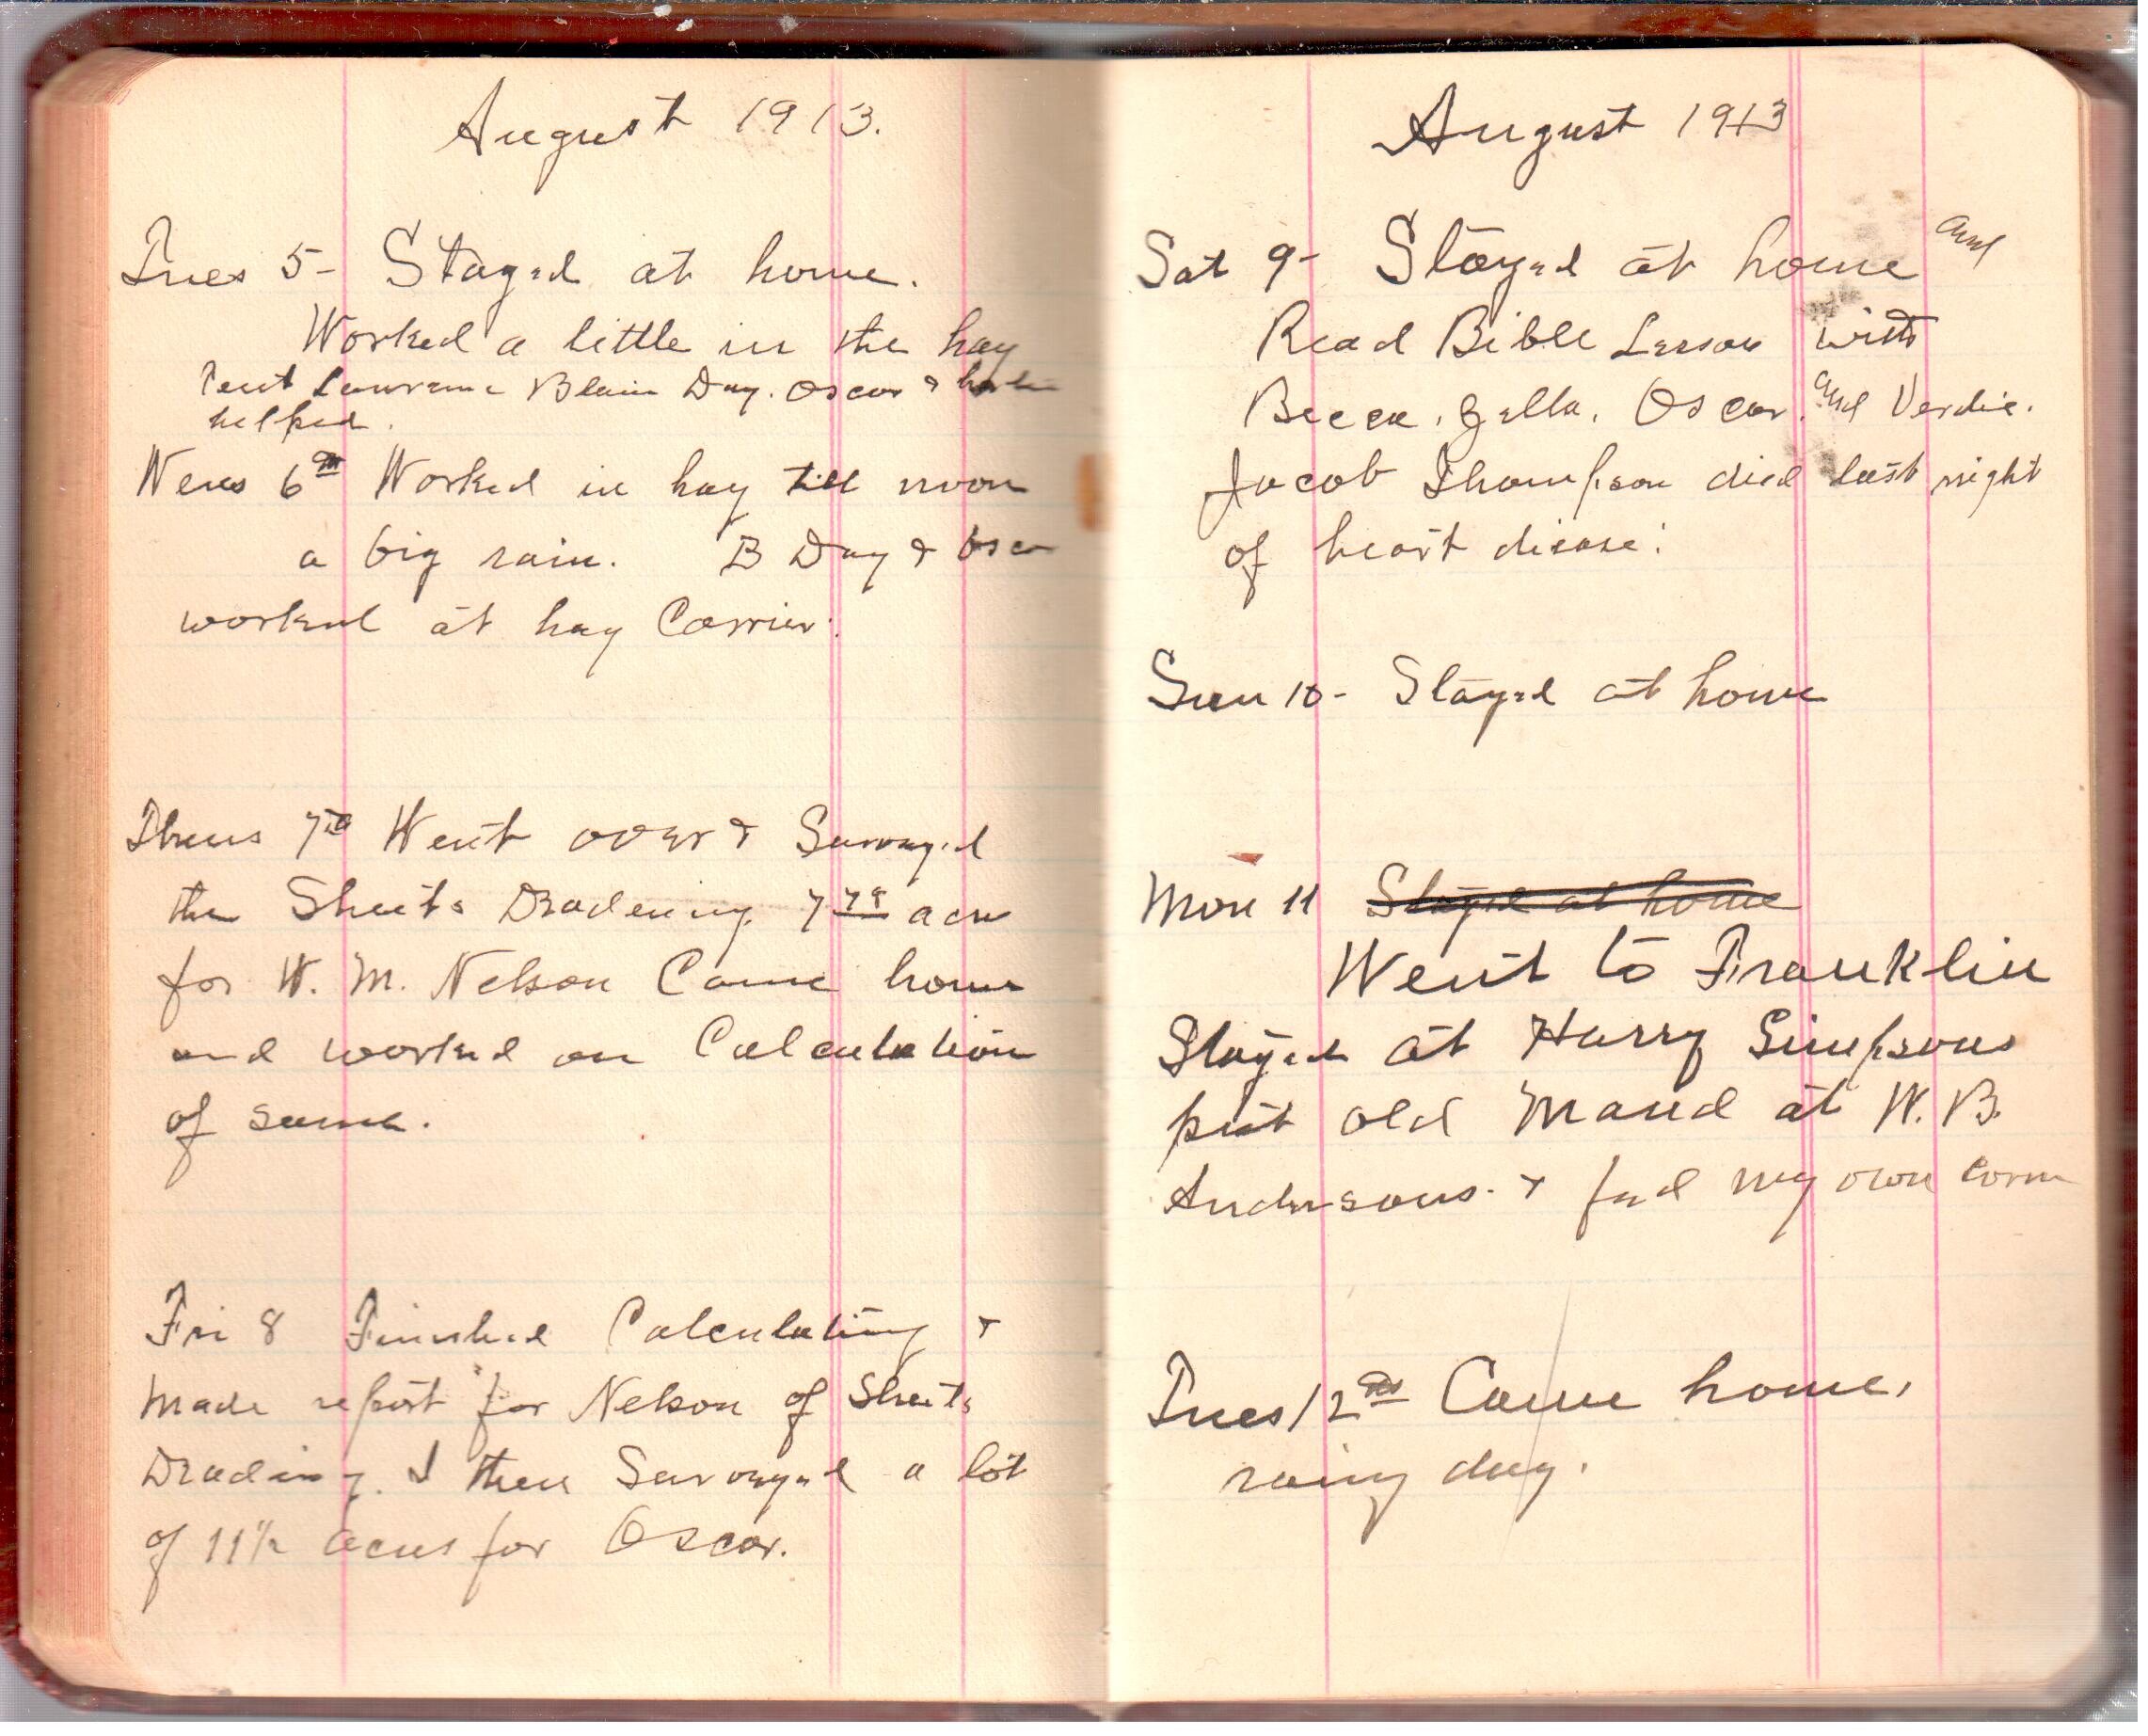 August 1913.
Tues 5- Stayed at home.
Worked a little in the hay
Lawrence Blain Day. Oscar &
helped.
6th Worked in hay till noon
a big rain. B Day & Oscar
worked at hay Carrier.
Thurs 7th Went over & Surveyed
the Sheets 7 acre
for W. M. Nelson Came home
and worked on Calculation
of same.
Fri 8 Finished Calculating &
made report for Nelson of Sheets
I then Surveyed a lot
of 11½ acres for Oscar.
August 1913
Sat 9- Stayed at home and
Read Bible Lesson with
Becca, Zella, Oscar, and Verdie.
Jacob Thompson died last night
of heart diease.
Sun 10- Stayed at home
Mon 11 Stayed at home
Went to Franklin
Stayed at Harry Simpsons
put old Maud at W. B.
Andersons. & fed my own corn
Tues 12th Came home.
rainy day.